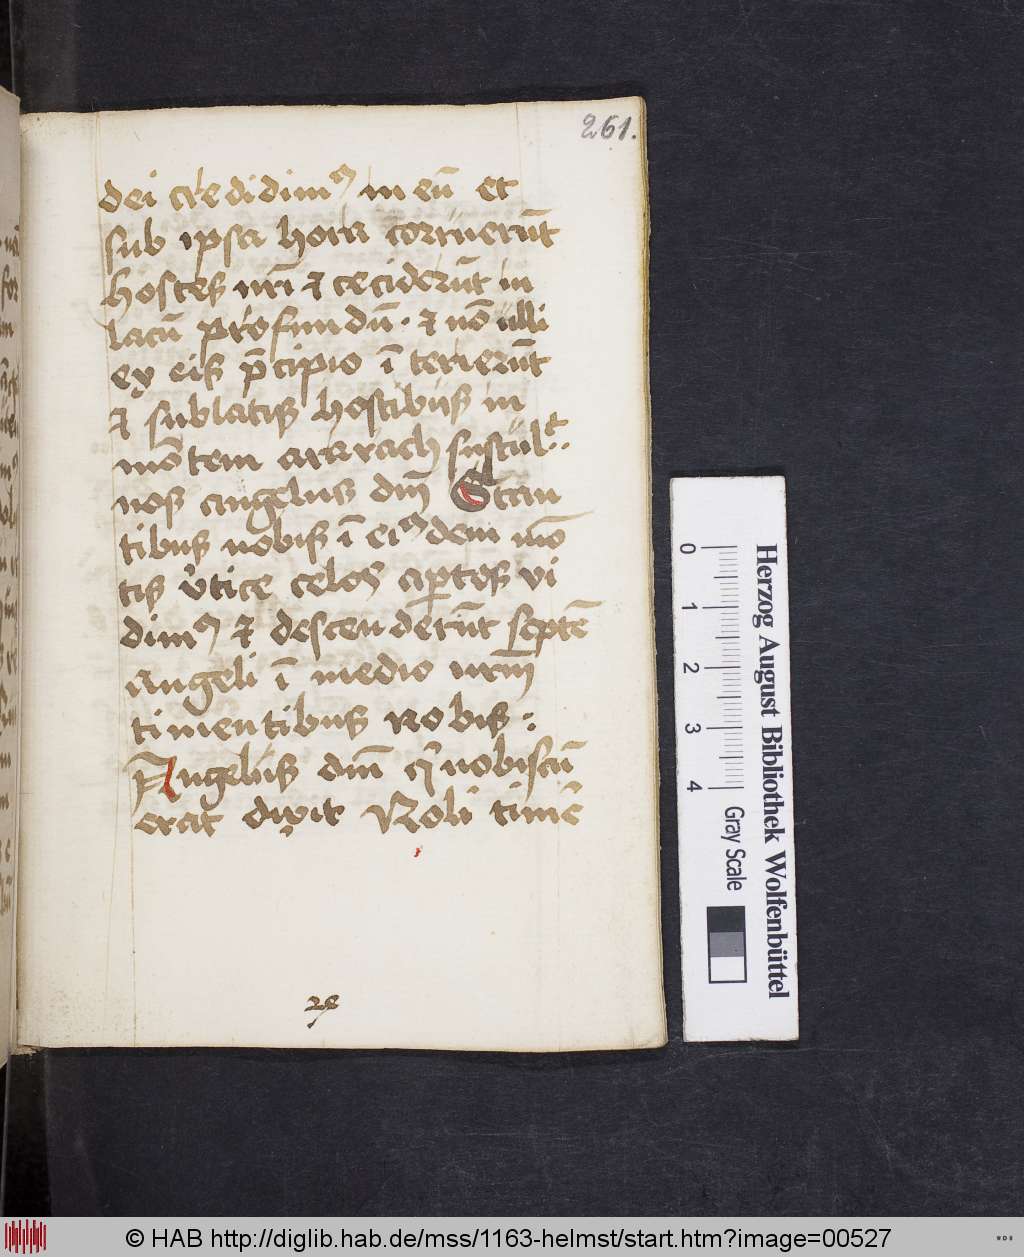 261.
dei credidimꝰ in eū et
sub ipsa hora corruerūt
hostes nr̄i ⁊ ceciderūt in
lacū profundū. ⁊ nō ulli
ex eis p̄cipio ī terierūt
⁊ sublatis hostibus in
mōtem ararach sustul't..
nos angelus dn̄i Stan
tibus nobis ī eiꝰdem mō
tis v̓tice celos aꝑtos vi
dimꝰ ⁊ descenderūt septē
angeli ī medio nrm̄
timentibus nobis :
Angelus dn̄i q̓ nobiscū
erat dixit Noli timē
Herzog August Bibliothek Wolfenbüttel
0 1 2 3 4 Gray Scale
© HAB http://diglib.hab.de/mss/1163-helmst/start.htm?image=00527